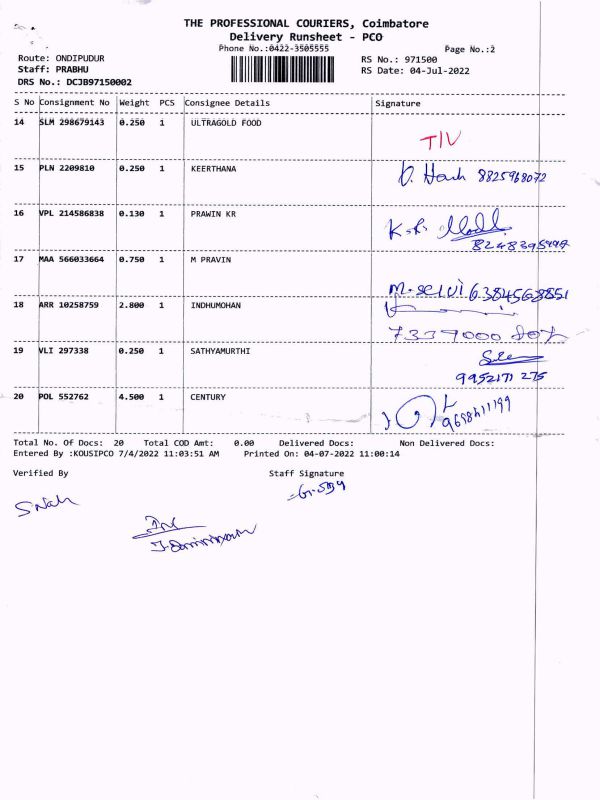 THE PROFESSIONAL COURIERS, Coimbatore
Delivery Runsheet - PCO
Phone No.:0422-3505555
Page No.:2
Route: ONDIPUDUR
RS No.: 971500
Staff: PRABHU
RS Date: 04-Jul-2022
DRS No.: DCJB97150002
S No Consignment No Weight PCS Consignee Details Signature
14 SLM 298679143 0.250 1 ULTRAGOLD FOOD
TIV
15 PLN 2209810 0.250 1 KEERTHANA
8825968072
16 VPL 214586838 0.130 1 PRAWIN KR
K.R.
17 MAA 566033664 0.750 1 M PRAVIN
M. Selvi 6384568851
18 ARR 10258759 2.800 1 INDHUMOHAN
7339000
19 VLI 297338 0.250 1 SATHYAMURTHI
9952171 275
20 POL 552762 4.500 1 CENTURY
9698411199
Total No. Of Docs: 20 Total COD Amt: 0.00 Delivered Docs: Non Delivered Docs:
Entered By :KOUSIPCO 7/4/2022 11:03:51 AM Printed On: 04-07-2022 11:00:14
Verified By Staff Signature